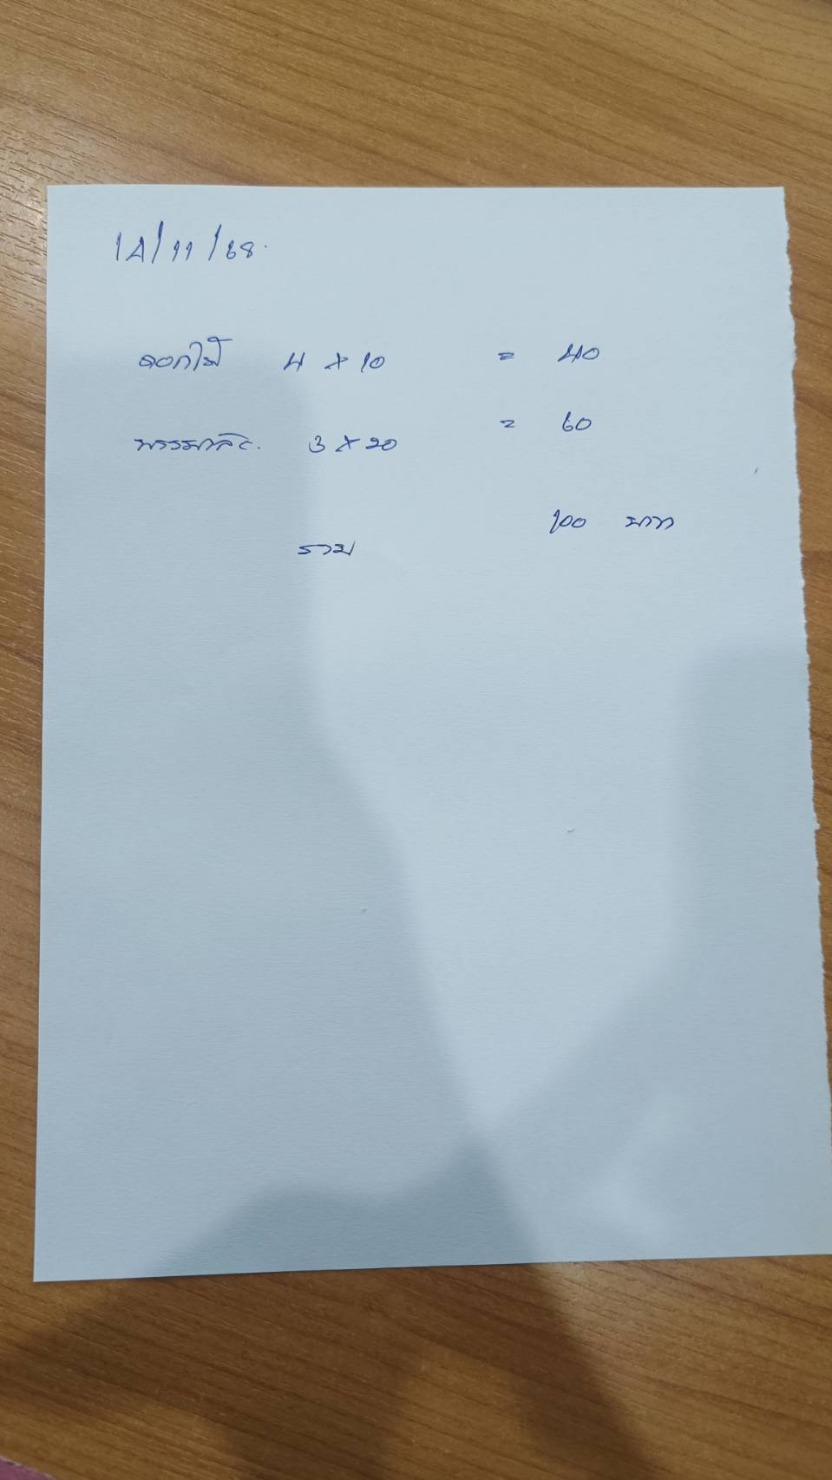 14/11/68.
ดอกไม้ 4 x 10 = 40
พวงมาลัย. 3 x 20 = 60
รวม 100 บาท